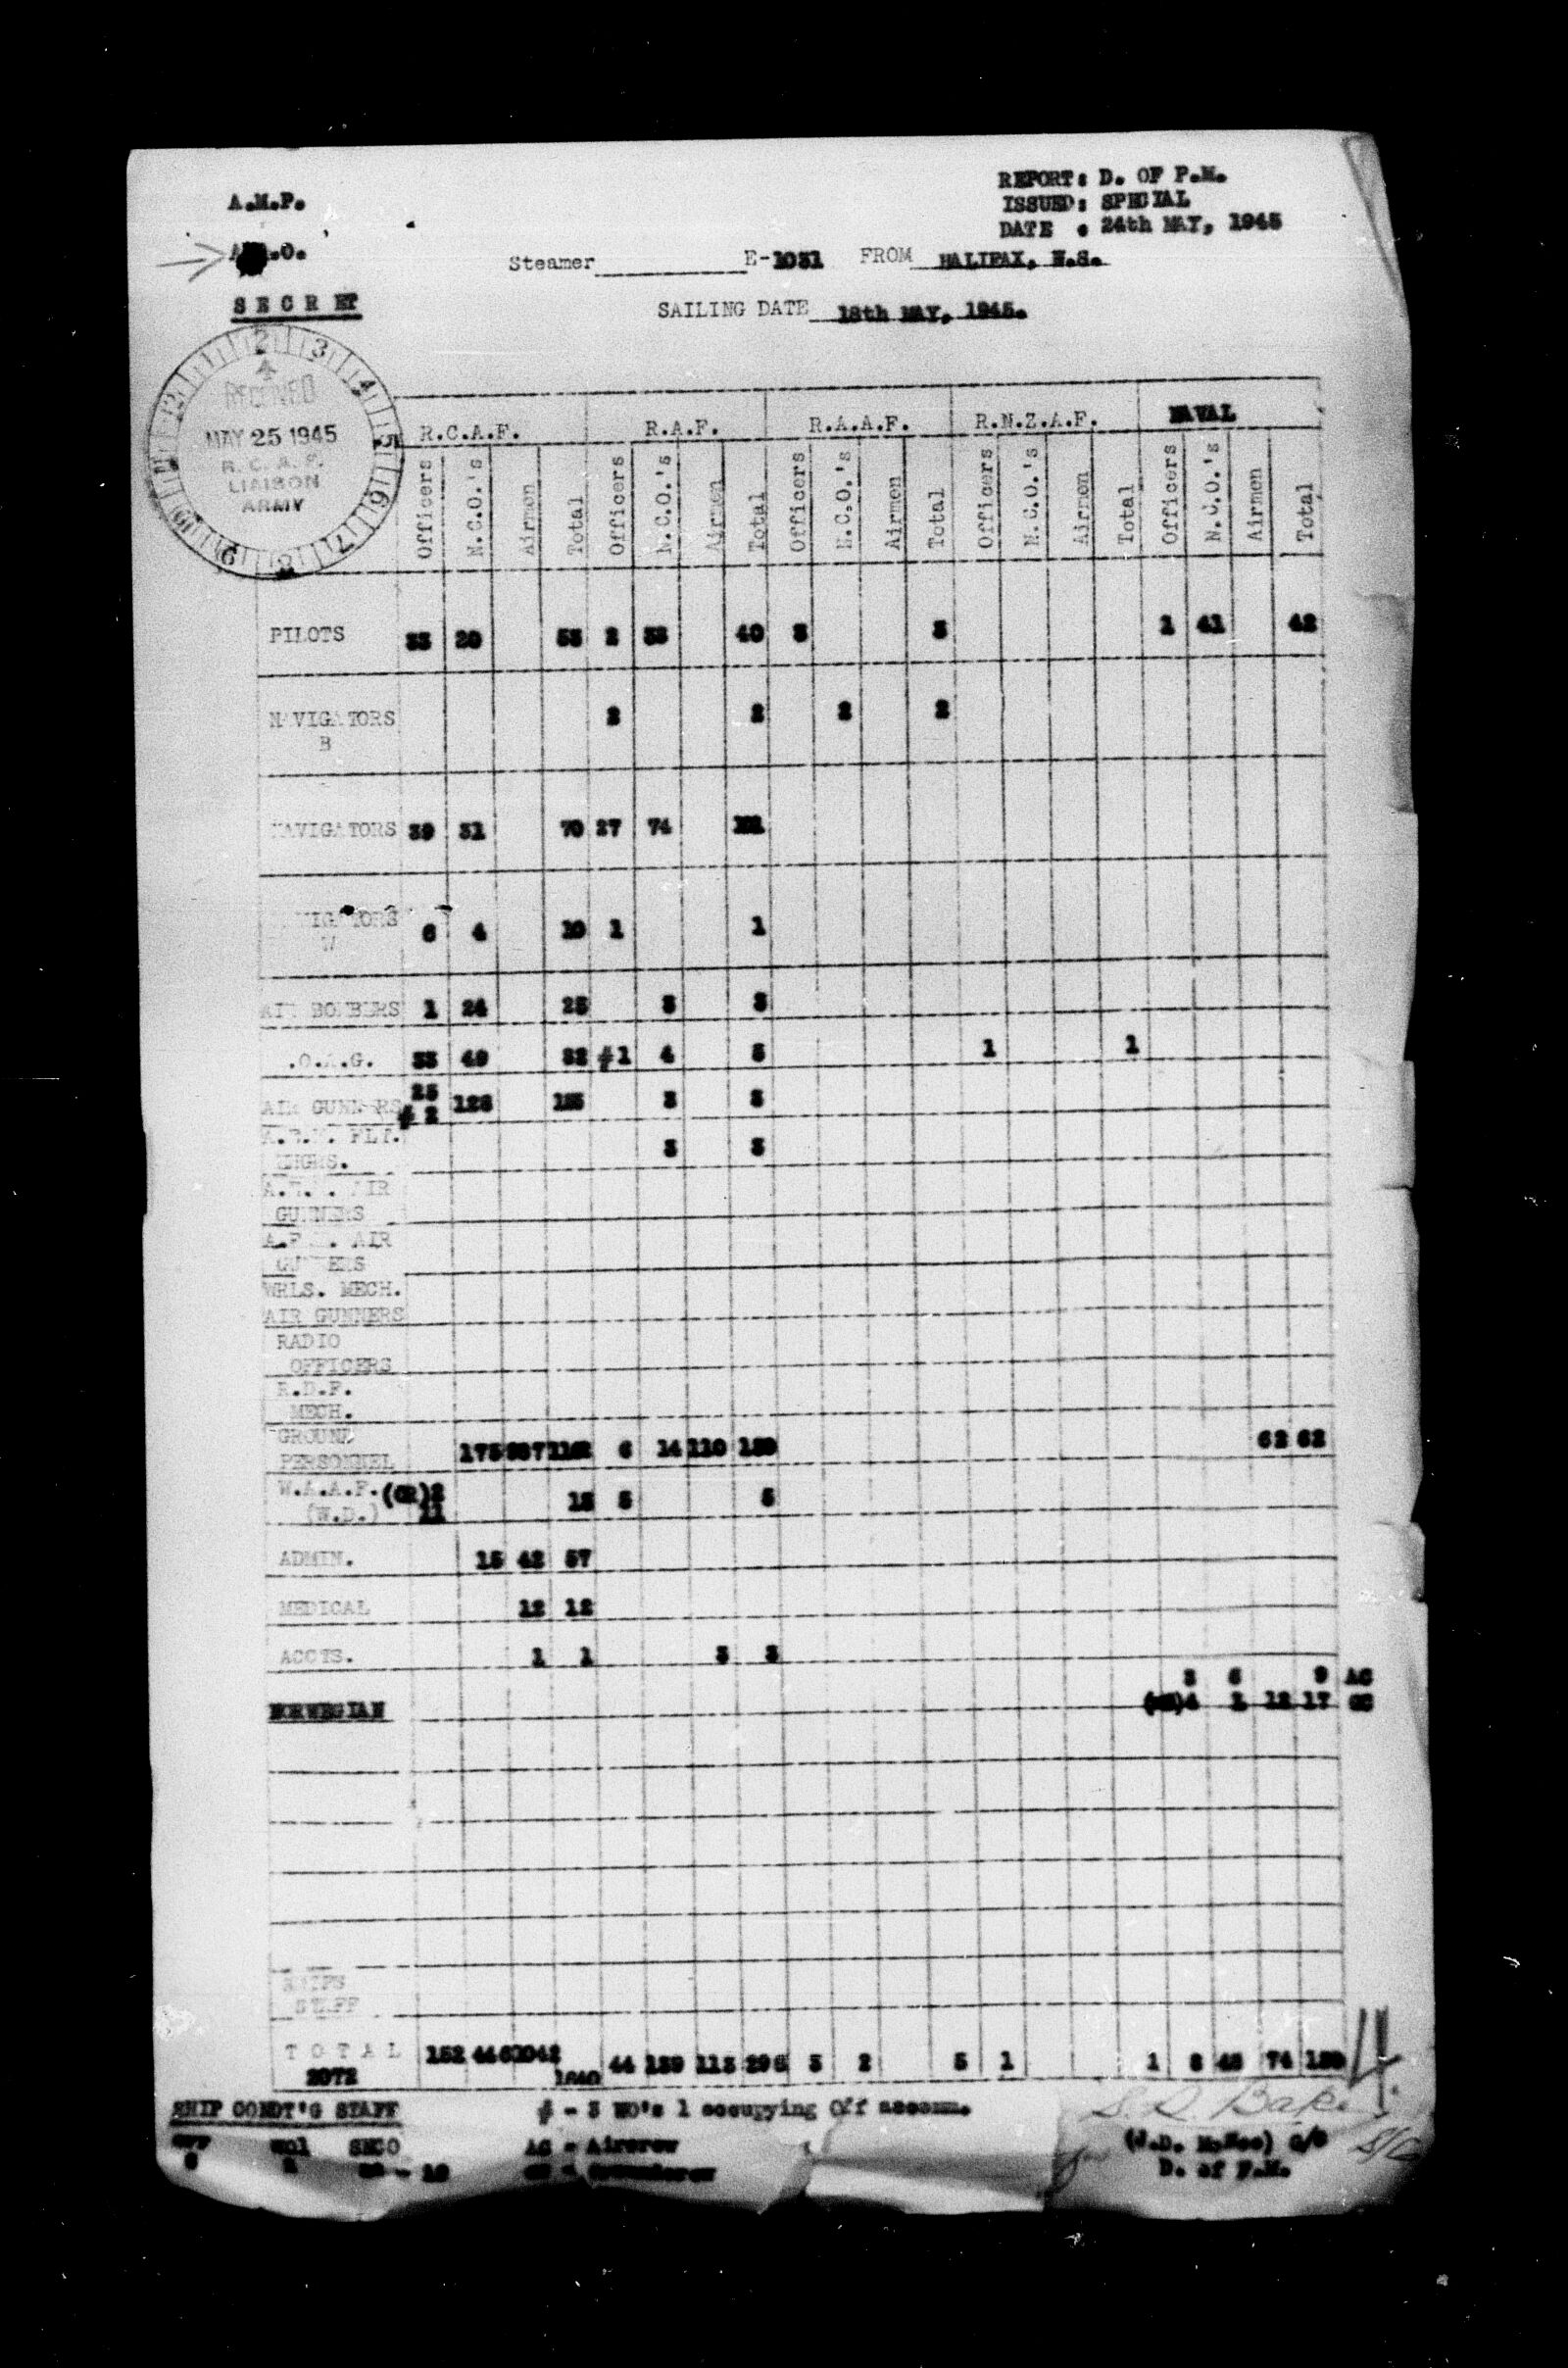 REPORT: D. OF P.M.
A.M.P.
ISSUED: SPECIAL
DATE : 24th MAY, 1945
.O.
Steamer E-1031 FROM HALIFAX, N.S.
SECRET
SAILING DATE 18th MAY, 1945.
2 3 4 5 6 7 8 9 10 11 12
RECEIVED
MAY 25 1945
R. C. A. F.
LIAISON
ARMY
R.C.A.F. R.A.F. R.A.A.F. R.N.Z.A.F. NAVAL
Officers N.C.O.'s Airmen Total Officers N.C.O.'s Airmen Total Officers N.C.O.'s Airmen Total Officers N.C.O.'s Airmen Total Officers N.C.O.'s Airmen Total
PILOTS 33 20 53 2 38 40 3 3 1 41 42
NAVIGATORS 2 2 2 2
B
NAVIGATORS 39 31 70 27 74 101
NAVIGATORS 6 4 10 1 1
W
AIR BOMBERS 1 24 25 3 3
.O.A.G. 33 49 82 #1 4 5 1 1
25
AIR GUNNERS # 2 128 155 3 3
FLT. 3 3
ENGRS.
AIR
GUNNERS
AIR
GUNNERS
WRLS. MECH.
AIR GUNNERS
RADIO
OFFICERS
R.D.F.
MECH.
GROUND
PERSONNEL 175 987 1162 6 14 110 130 62 62
W.A.A.F. (GR)2 13 5 5
(W.D.) 11
ADMIN. 15 42 57
MEDICAL 12 12
ACCTS. 1 1 3 3
3 6 9 AC
NORWEGIAN 4 1 12 17 GC
SHIPS
STAFF
TOTAL 152 446 1042 44 139 113 296 3 2 5 1 1 8 48 74 130
2072 1640
4
SHIP COMDT'S STAFF # - 3 WO's 1 occupying Off accomm.
S. R. Baker
SNCO AC - Aircrew G/C
D. of P.M.